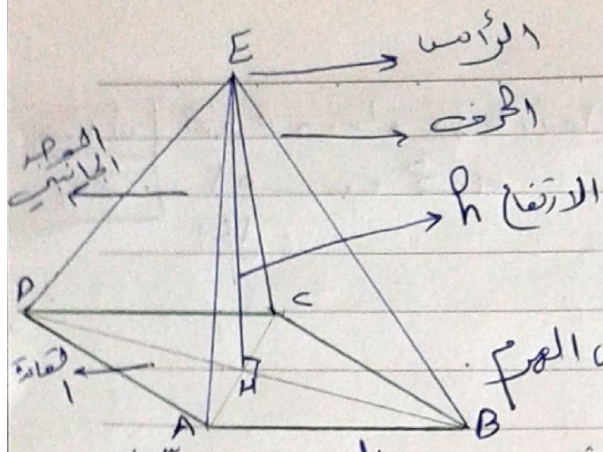 E
الرأس
الحرف
الوجه
الجانبي
الارتفاع h
D
C
القاعدة
H
الهرم
A
B